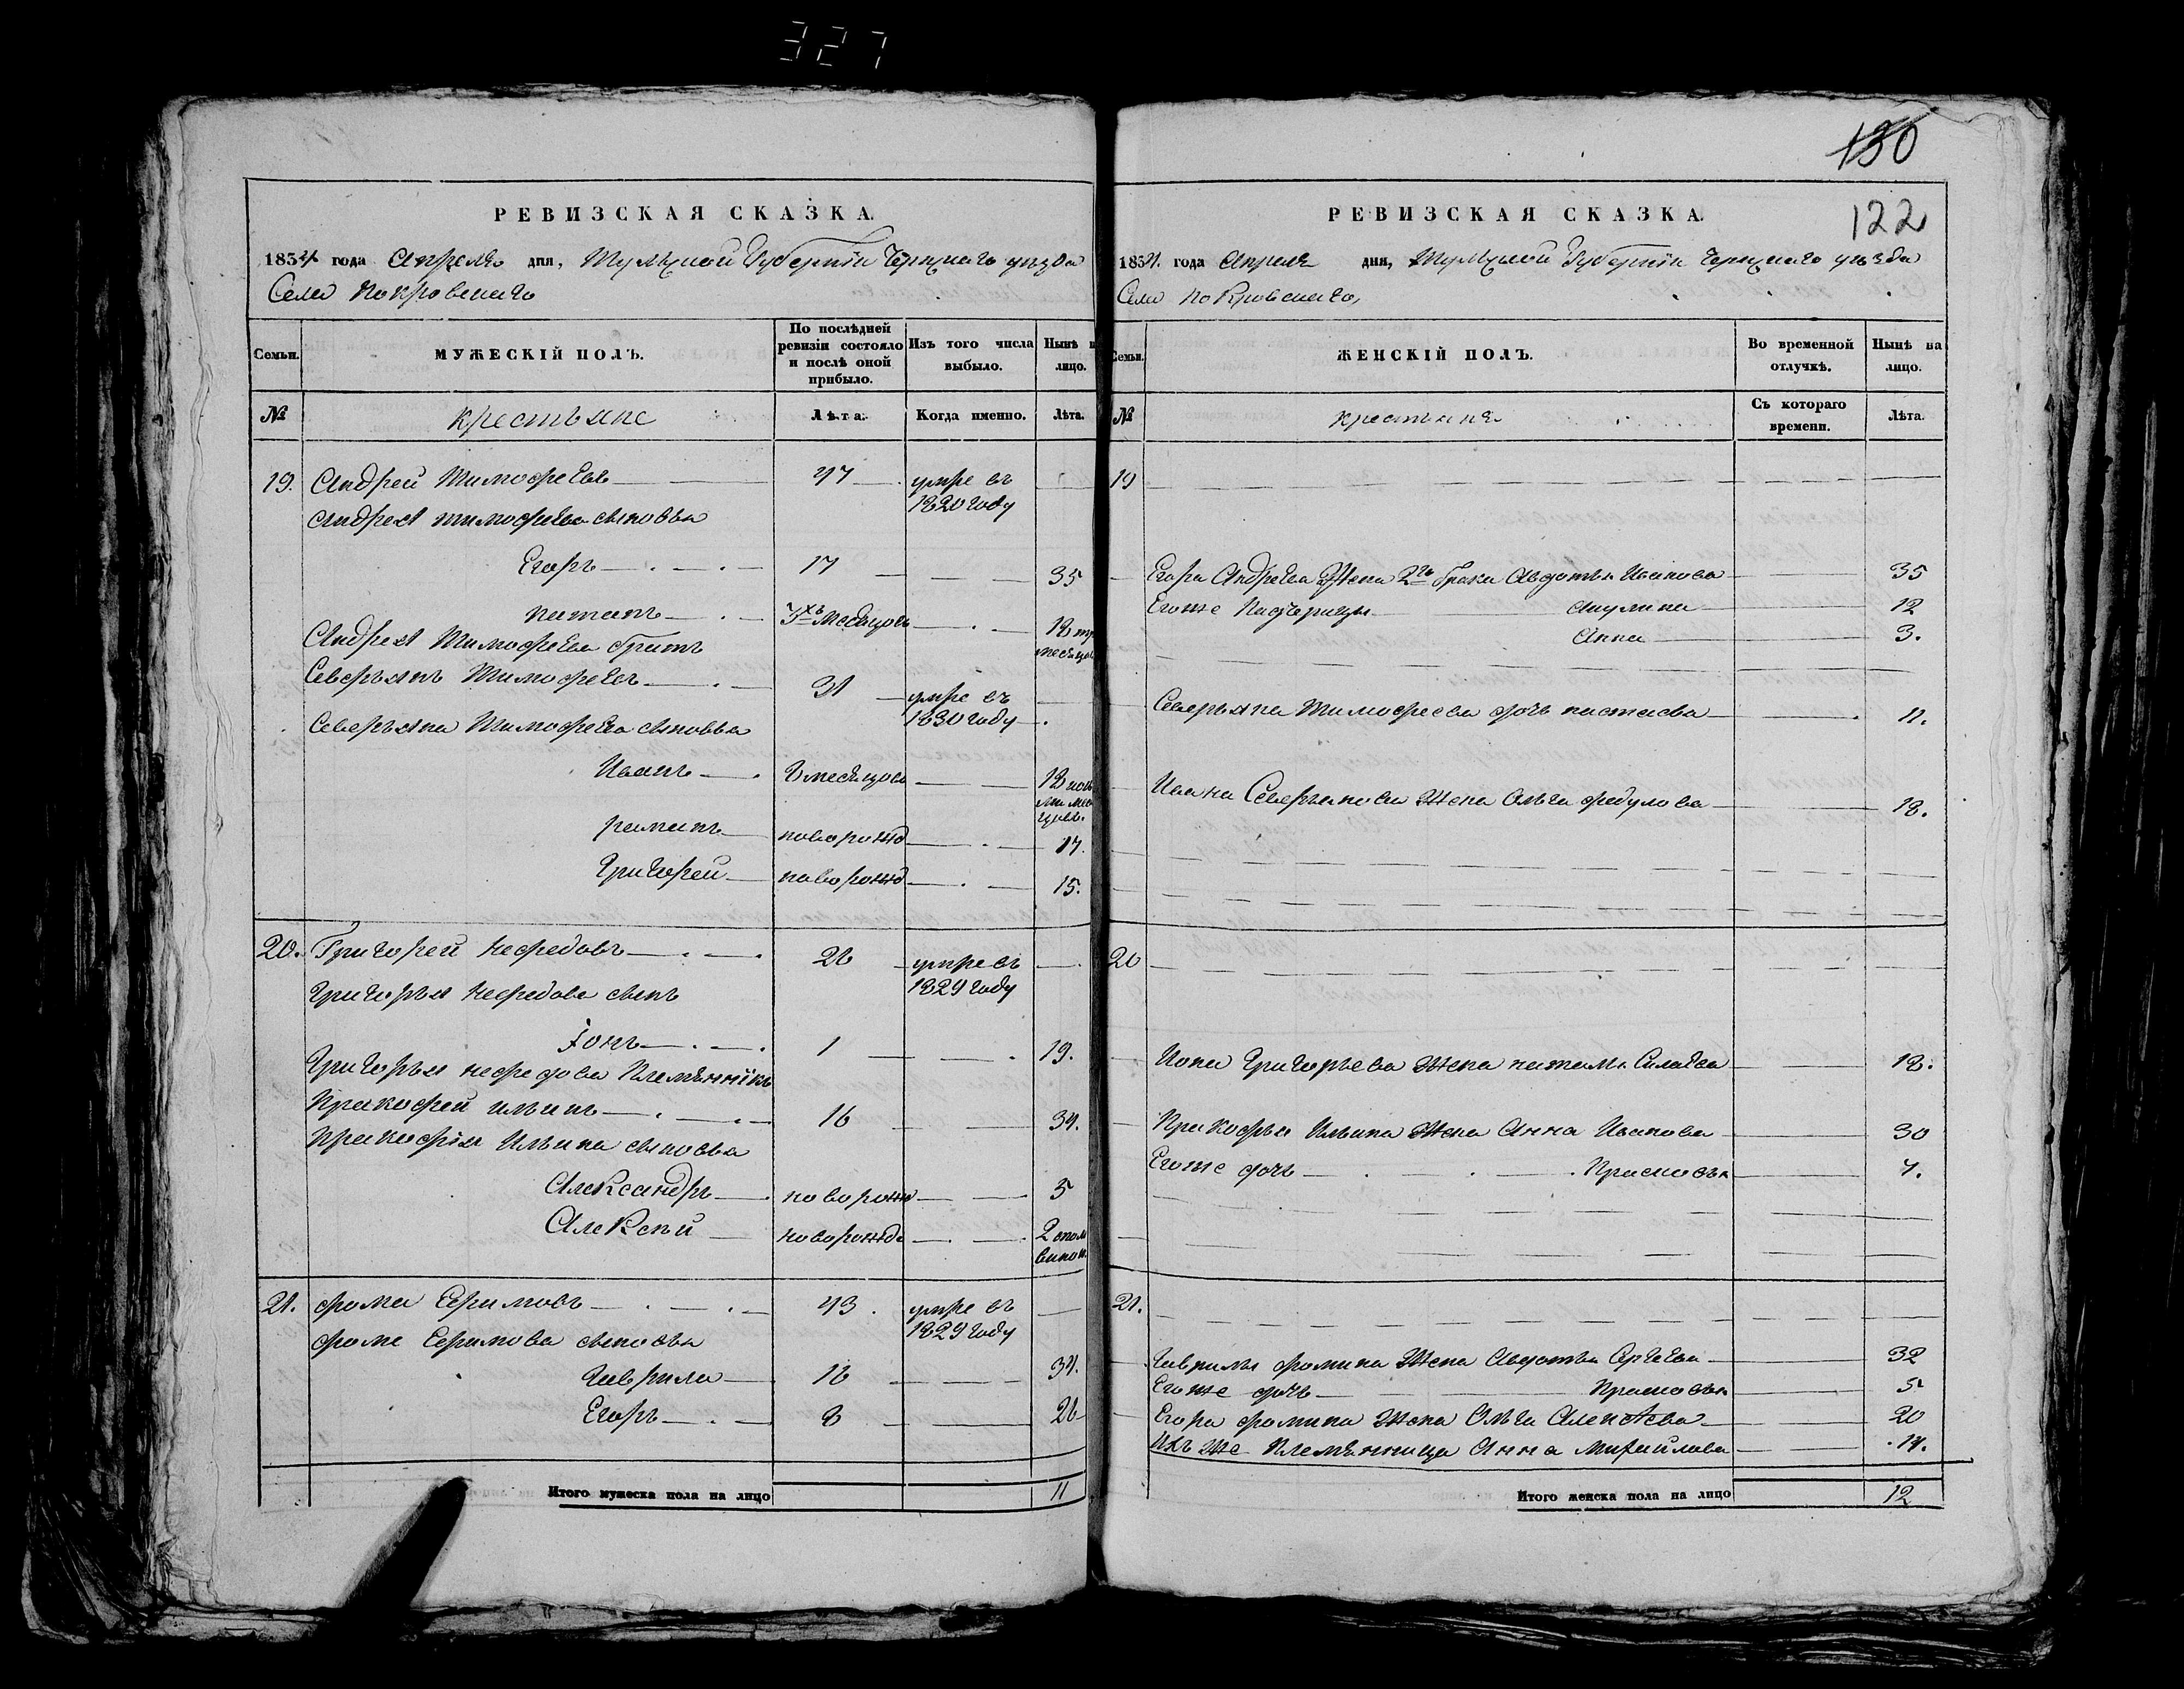 327
РЕВИЗСКАЯ СКАЗКА.
1834 года Апреля дня, Тульской Губернїи Чернскаго уѣзда
Села Покровскаго
Семьи.
МУЖЕСКІЙ ПОЛЪ.
По послѣдней ревизіи состояло и послѣ оной прибыло.
Изъ того числа выбыло.
Нынѣ на лицо.
№
крестьяне
Лѣта.
Когда именно.
Лѣта.
19. Андрей Тимофеевъ 47 умре въ
1820 году
Андрея тимофеева сыновья
Егоръ 17 35
потапъ 3хъ месяцовъ 18 тр
месяцов
Андрея Тимофеева братъ
Северьянъ Тимофеевъ 31 умре въ
1830 году
Северьяна Тимофеева сыновья
Иванъ 6 месяцовъ 18
романъ новорожд 17.
Григорей новорожд 15.
20. Григорей Нефедовъ 26 умре въ
1829 году
Григорья Нефедова сынъ
Іонъ 1 19.
Григорья нефедова Племянникъ
Пракофей ильинъ 16 34.
Пракофія Ильина сыновья
Александръ новорожд 5
Алексѣй новорожде 2 спол
виной.
21. фома Ефимовъ 43 умре въ
1829 году
фоме Ефимова сыновья
Гаврила 16 34.
Егоръ 8 26
Итого мужеска пола на лицо 11
130
122
РЕВИЗСКАЯ СКАЗКА.
1834. года Апреля дня, Тульской Губернїи Чернскаго уѣзда
Села Покровскаго,
Семьи.
ЖЕНСКІЙ ПОЛЪ.
Во временной отлучкѣ.
Нынѣ на лицо.
№
крестьяне
Съ котораго времени.
Лѣта.
19
Егора Андреева Жена 2го брака Авдотья Иванова 35
Егоже Падчерицы Акулина 12
Анна 3.
Северьяна Тимофеева дочь настасья 11.
Ивана Северьянова Жена Ольга федулова 18.
20
Иона Григорьева Жена наталья Силаева 18.
Пракофья Ильина Жена Анна Иванова 30
Егоже дочь Прасковья 7.
21.
Гаврилы фомина Жена Авдотья Сергеева 32
Егоже дочь Прасковья 5
Егора фомина Жена Ольга Алексеева 20
Ихъ же Племянница Анна Михайлова 14.
Итого женска пола на лицо 12